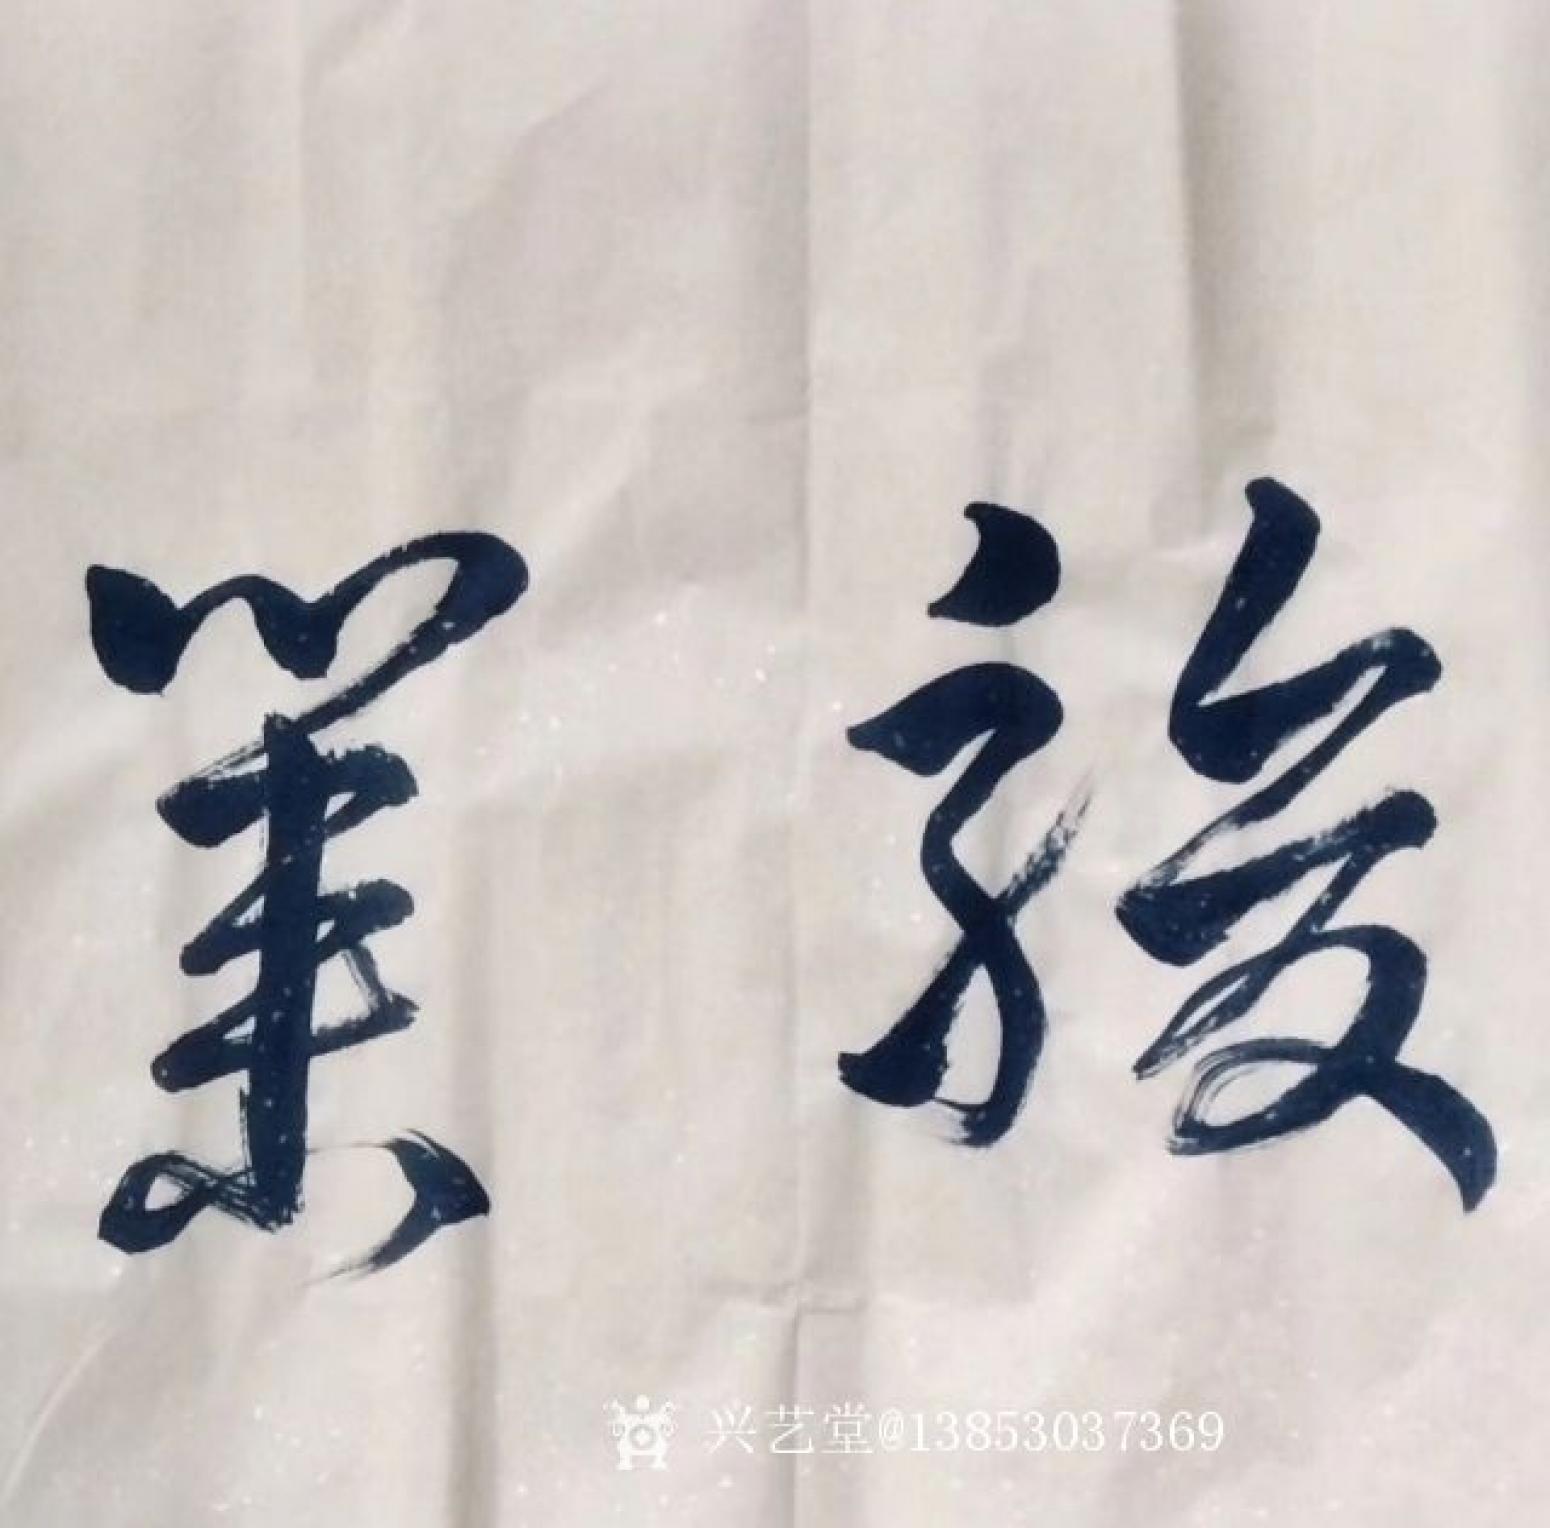 骏業
兴艺堂@13853037369